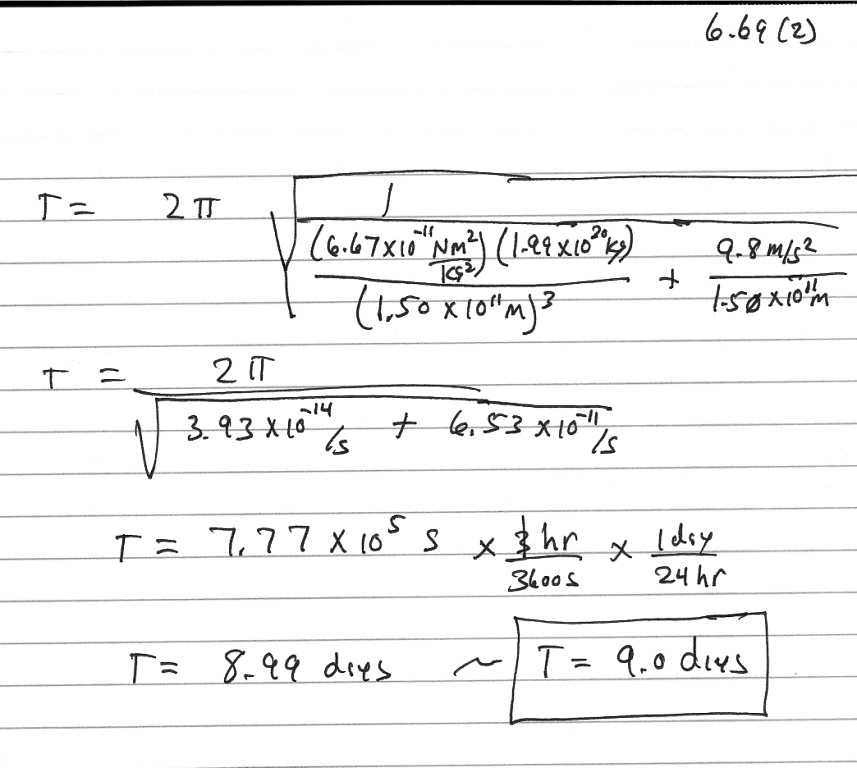 6.69 (2)
T = 2π √( 1 / ( (6.67 x 10^-11 Nm²/kg²) (1.99 x 10^30 kg) / (1.50 x 10^11 m)^3 + 9.8 m/s² / 1.50 x 10^11 m ) )
T = 2π / √( 3.93 x 10^-14 /s + 6.53 x 10^-11 /s )
T = 7.77 x 10^5 s x 1 hr / 3600 s x 1 day / 24 hr
T = 8.99 days ~ T = 9.0 days